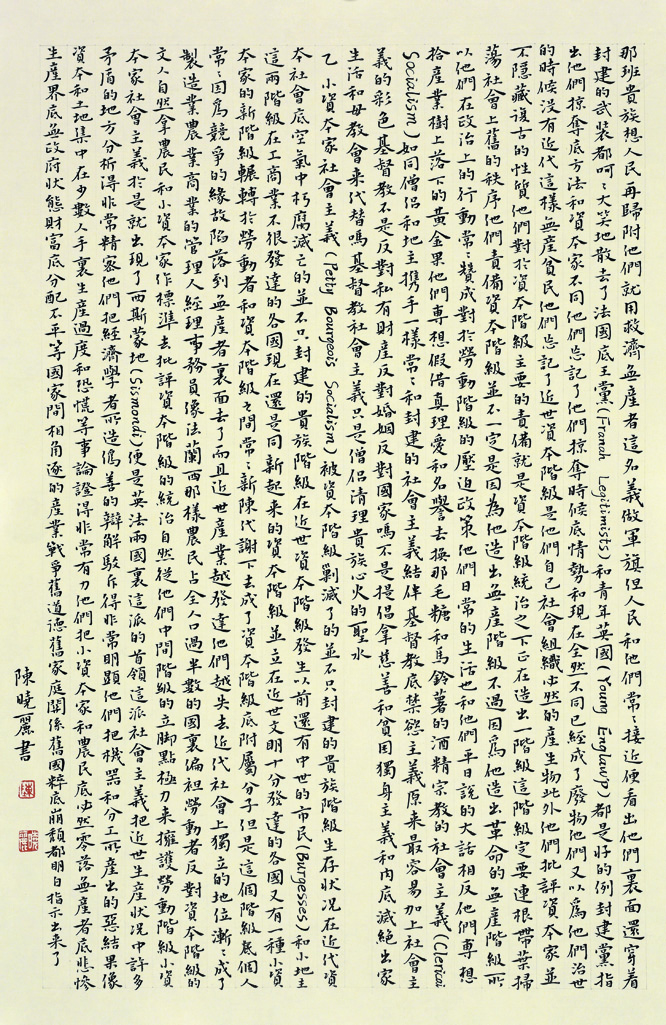 那班貴族想人民再歸附他們就用救濟無產者這名義做軍旗但人民和他們常〻接近便看出他們裏面還穿着
封建的武裝都呵〻大笑地散去了法國底王黨(Franah Legitimists)和青年英國(Young Englawp)都是好的例封建黨指
出他們掠奪底方法和資本家不同他們忘記了他們掠奪時候底情勢和現在全然不同已經成了廢物他們又以為他們治世
的時候沒有近代這樣無產貧民他們忘記了近世資本階級是他們自己社會組織必然的產生物此外他們批評資本家並
不隱藏復古的性質他們對於資本階級主要的責備就是資本階級統治之下正在造出一階級這階級定要連根帶葉掃
蕩社會上舊的秩序他們責備資本階級並不一定是因為他造出無產階級不過因為他造出革命的無產階級所
以他們在政治上的行動常〻贊成對於勞動階級的壓迫政策他們日常的生活也和他們平日說的大話相反他們專想
拾產業樹上落下的黃金果他們專想假借真理愛和名譽去換那毛糖和馬鈴薯的酒精宗教的社會主義(Clericai
Socialism)如同僧侶和地主携手一樣常〻和封建的社會主義結伴基督教底禁慾主義原來最容易加上社會主
義的彩色基督教不是反對私有財產反對婚姻反對國家嗎不是提倡拿慈善和貧困獨身主義和肉底滅絕出家
生活和母教會來代替嗎基督教社會主義只是僧侶清理貴族心火的聖水
乙 小資本家社會主義(Petty Bourgeois Socialism)被資本階級剿滅了的並不只封建的貴族階級生存狀況在近代資
本社會底空氣中朽腐滅亡的並不只封建的貴族階級在近世資本階級發生以前還有中世的市民(Burgesses)和小地主
這兩階級在工商業不很發達的各國現在還是同新起來的資本階級並立在近世文明十分發達的各國又有一種小資
本家的新階級輾轉於勞動者和資本階級之間常〻新陳代謝下去成了資本階級底附屬分子但是這個階級底個人
常〻因為競爭的緣故陷落到無產者裏面去了而且近世產業越發達他們越失去近代社會上獨立的地位漸〻成了
製造業農業商業的管理人經理事務員像法蘭西那樣農民占全人口過半數的國裏偏袒勞動者反對資本階級的
文人自然拿農民和小資本家作標準去批評資本階級的統治自然從他們中間階級的立脚點極力來擁護勞動階級小資
本家社會主義於是就出現了西斯蒙地(Sismondi)便是英法兩國裏這派的首領這派社會主義把近世生產狀況中許多
矛盾的地方分析得非常精密他們把經濟學者所造偽善的辯解駁斥得非常明顯他們把機器和分工所產出的惡結果像
資本和土地集中在少數人手裏生產過度和恐慌等事論證得非常有力他們把小資本家和農民底必然零落無產者底悲慘
生產界底無政府狀態財富底分配不平等國家間相角逐的產業戰爭舊道德舊家庭關係舊國粹底崩頹都明白指示出來了
陳曉麗書